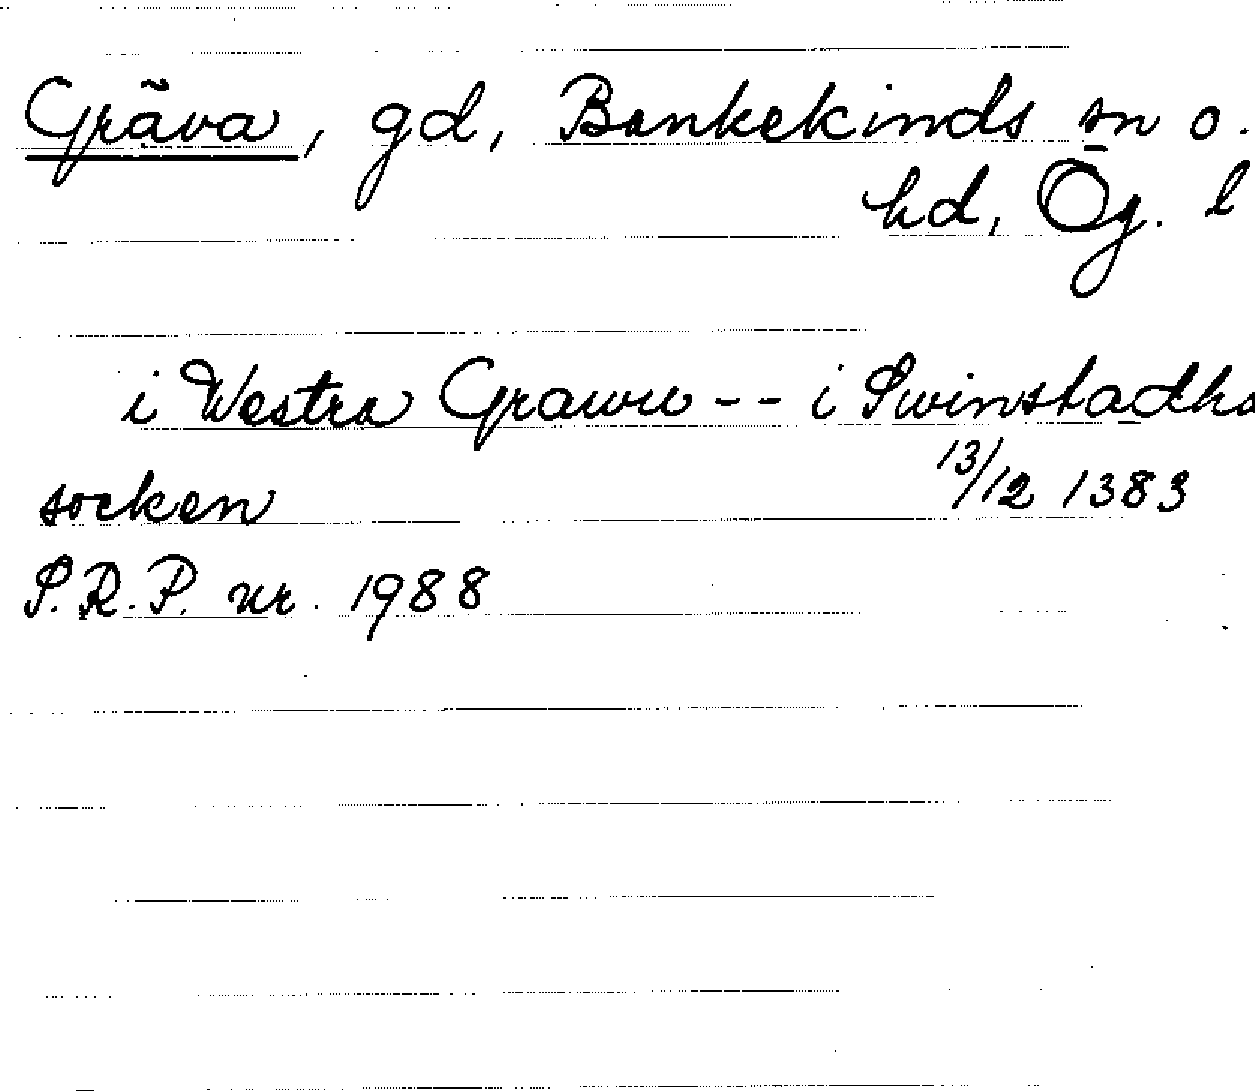 Gräva, gd, Bankekinds sn o.
hd, Ög. l
i Westra Grawu -- i Swinstadha
socken 13/12 1383
S.R.P. nr. 1988